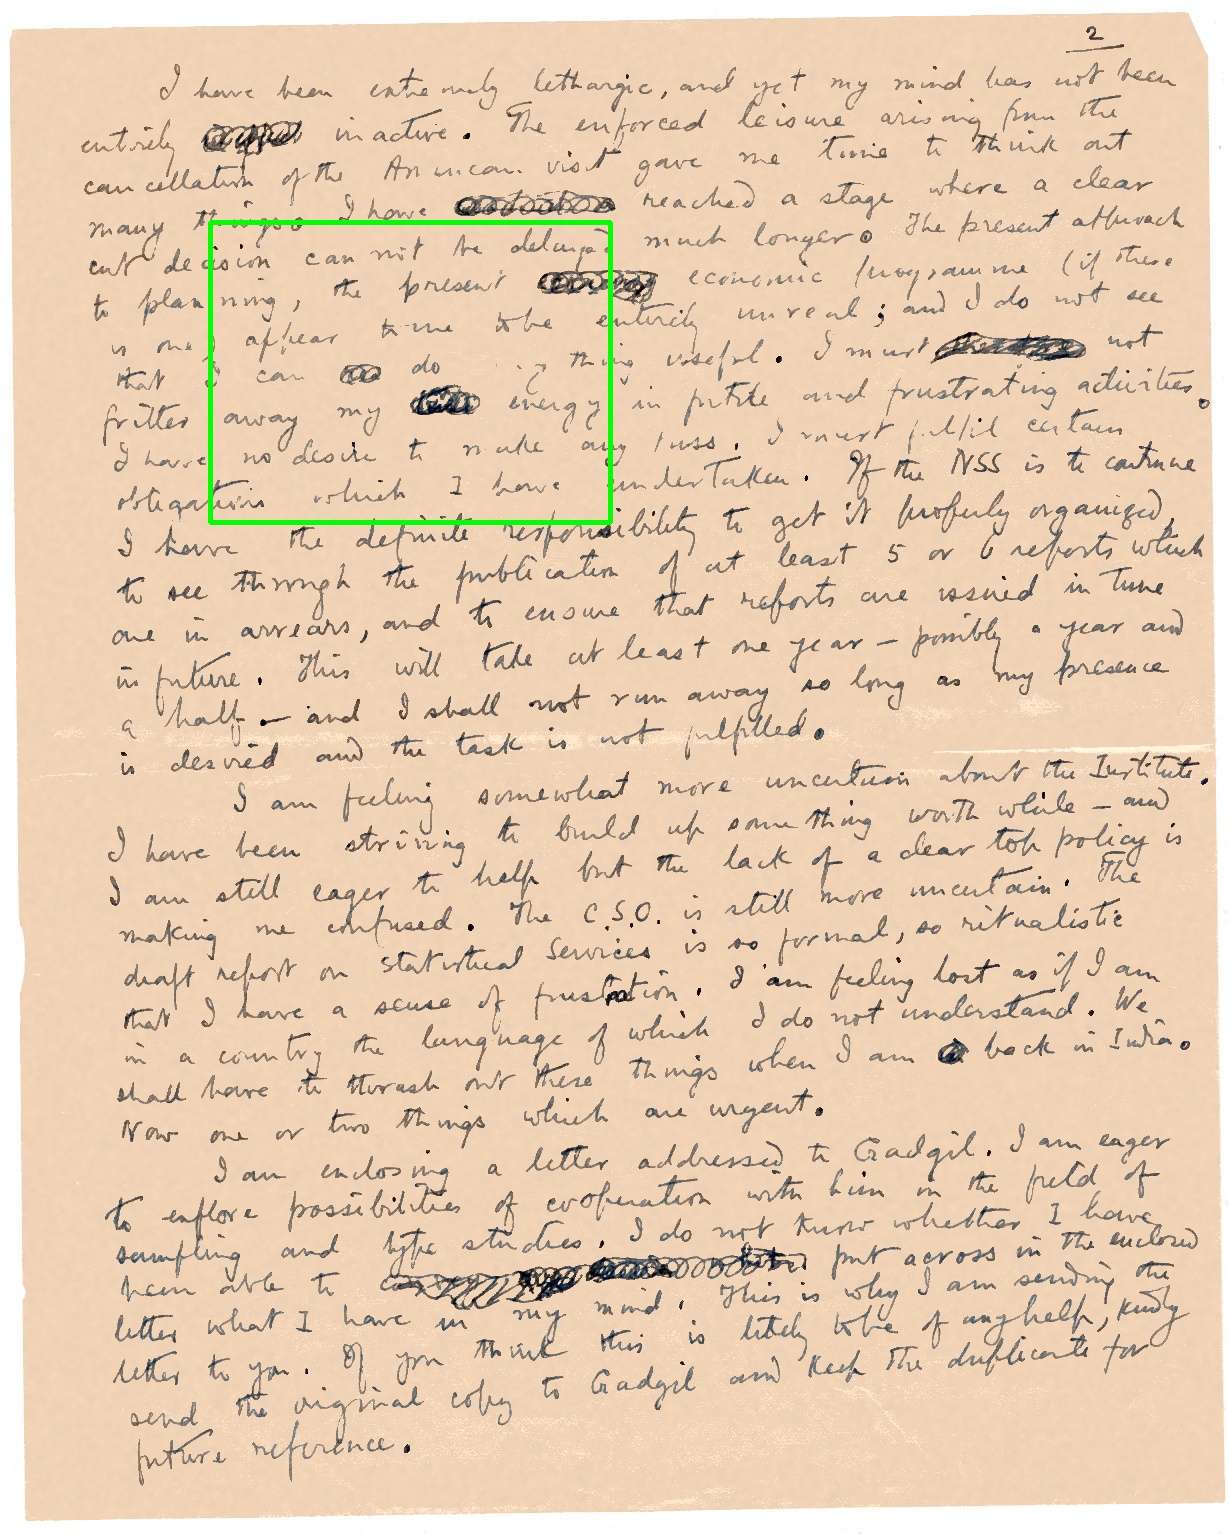 2
I have been extremely lethargic, and yet my mind has not been
entirely inactive. The enforced leisure arising from the
cancellation of the American visit gave me time to think out
many things. I have reached a stage where a clear
cut decision can not be delayed much longer. The present approach
to planning, the present economic programme (if there
is one) appear to me to be entirely unreal; and I do not see
that I can do any thing useful. I must not
fritter away my energy in futile and frustrating activities.
I have no desire to make any fuss. I must fulfil certain
obligations which I have undertaken. If the NSS is to continue
I have the definite responsibility to get it properly organized,
to see through the publication of at least 5 or 6 reports which
are in arrears, and to ensure that reports are issued in time
in future. This will take at least one year – possibly a year and
a half – and I shall not run away so long as my presence
is desired and the task is not fulfilled.
I am feeling somewhat more uncertain about the Institute.
I have been striving to build up some thing worth while – and
I am still eager to help but the lack of a clear top policy is
making me confused. The C.S.O. is still more uncertain. The
draft report on Statistical Services is so formal, so ritualistic
that I have a sense of frustation. I am feeling lost as if I am
in a country the language of which I do not understand. We
shall have to thrash out these things when I am back in India.
Now one or two things which are urgent.
I am enclosing a letter addressed to Gadgil. I am eager
to explore possibilities of cooperation with him in the field of
sampling and type studies. I do not know whether I have
been able to put across in the enclosed
letter what I have in my mind. This is why I am sending the
letter to you. If you think this is likely to be of any help, kindly
send the original copy to Gadgil and keep the duplicate for
future reference.